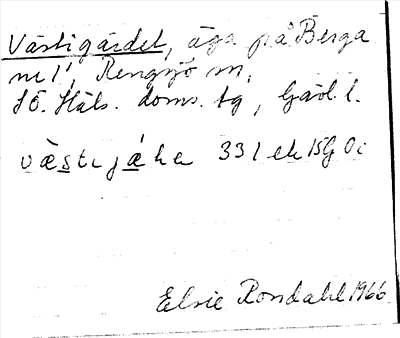 Västigärdet, äga på Berga
nr 1, Rengsjö sn,
SÖ. Häls. doms. tg, Gävl. l.
væsti jæ̀ḷe 331
Elsie Rondahl 1966